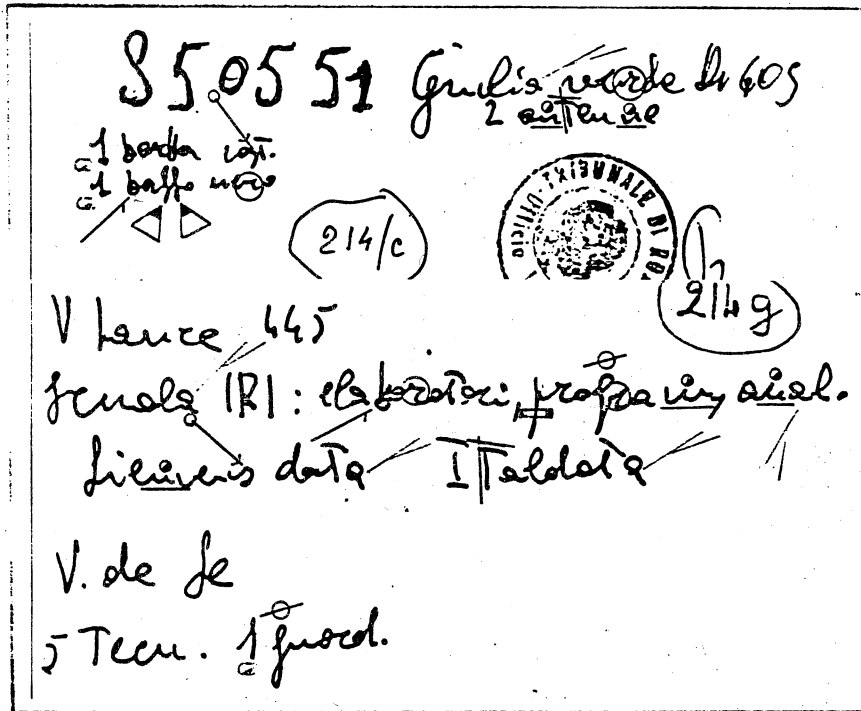 S50551 Giulia verde Dr 609
2 antenne
1 barba cast.
1 baffo nero
214/c
UFFICIO TRIBUNALE DI ROMA
214 g
V Lance 445
Scuola IRI: elaboratori, programm, anal.
Siemens data Italdata
V. de Se
5 Tecn. 1 guard.